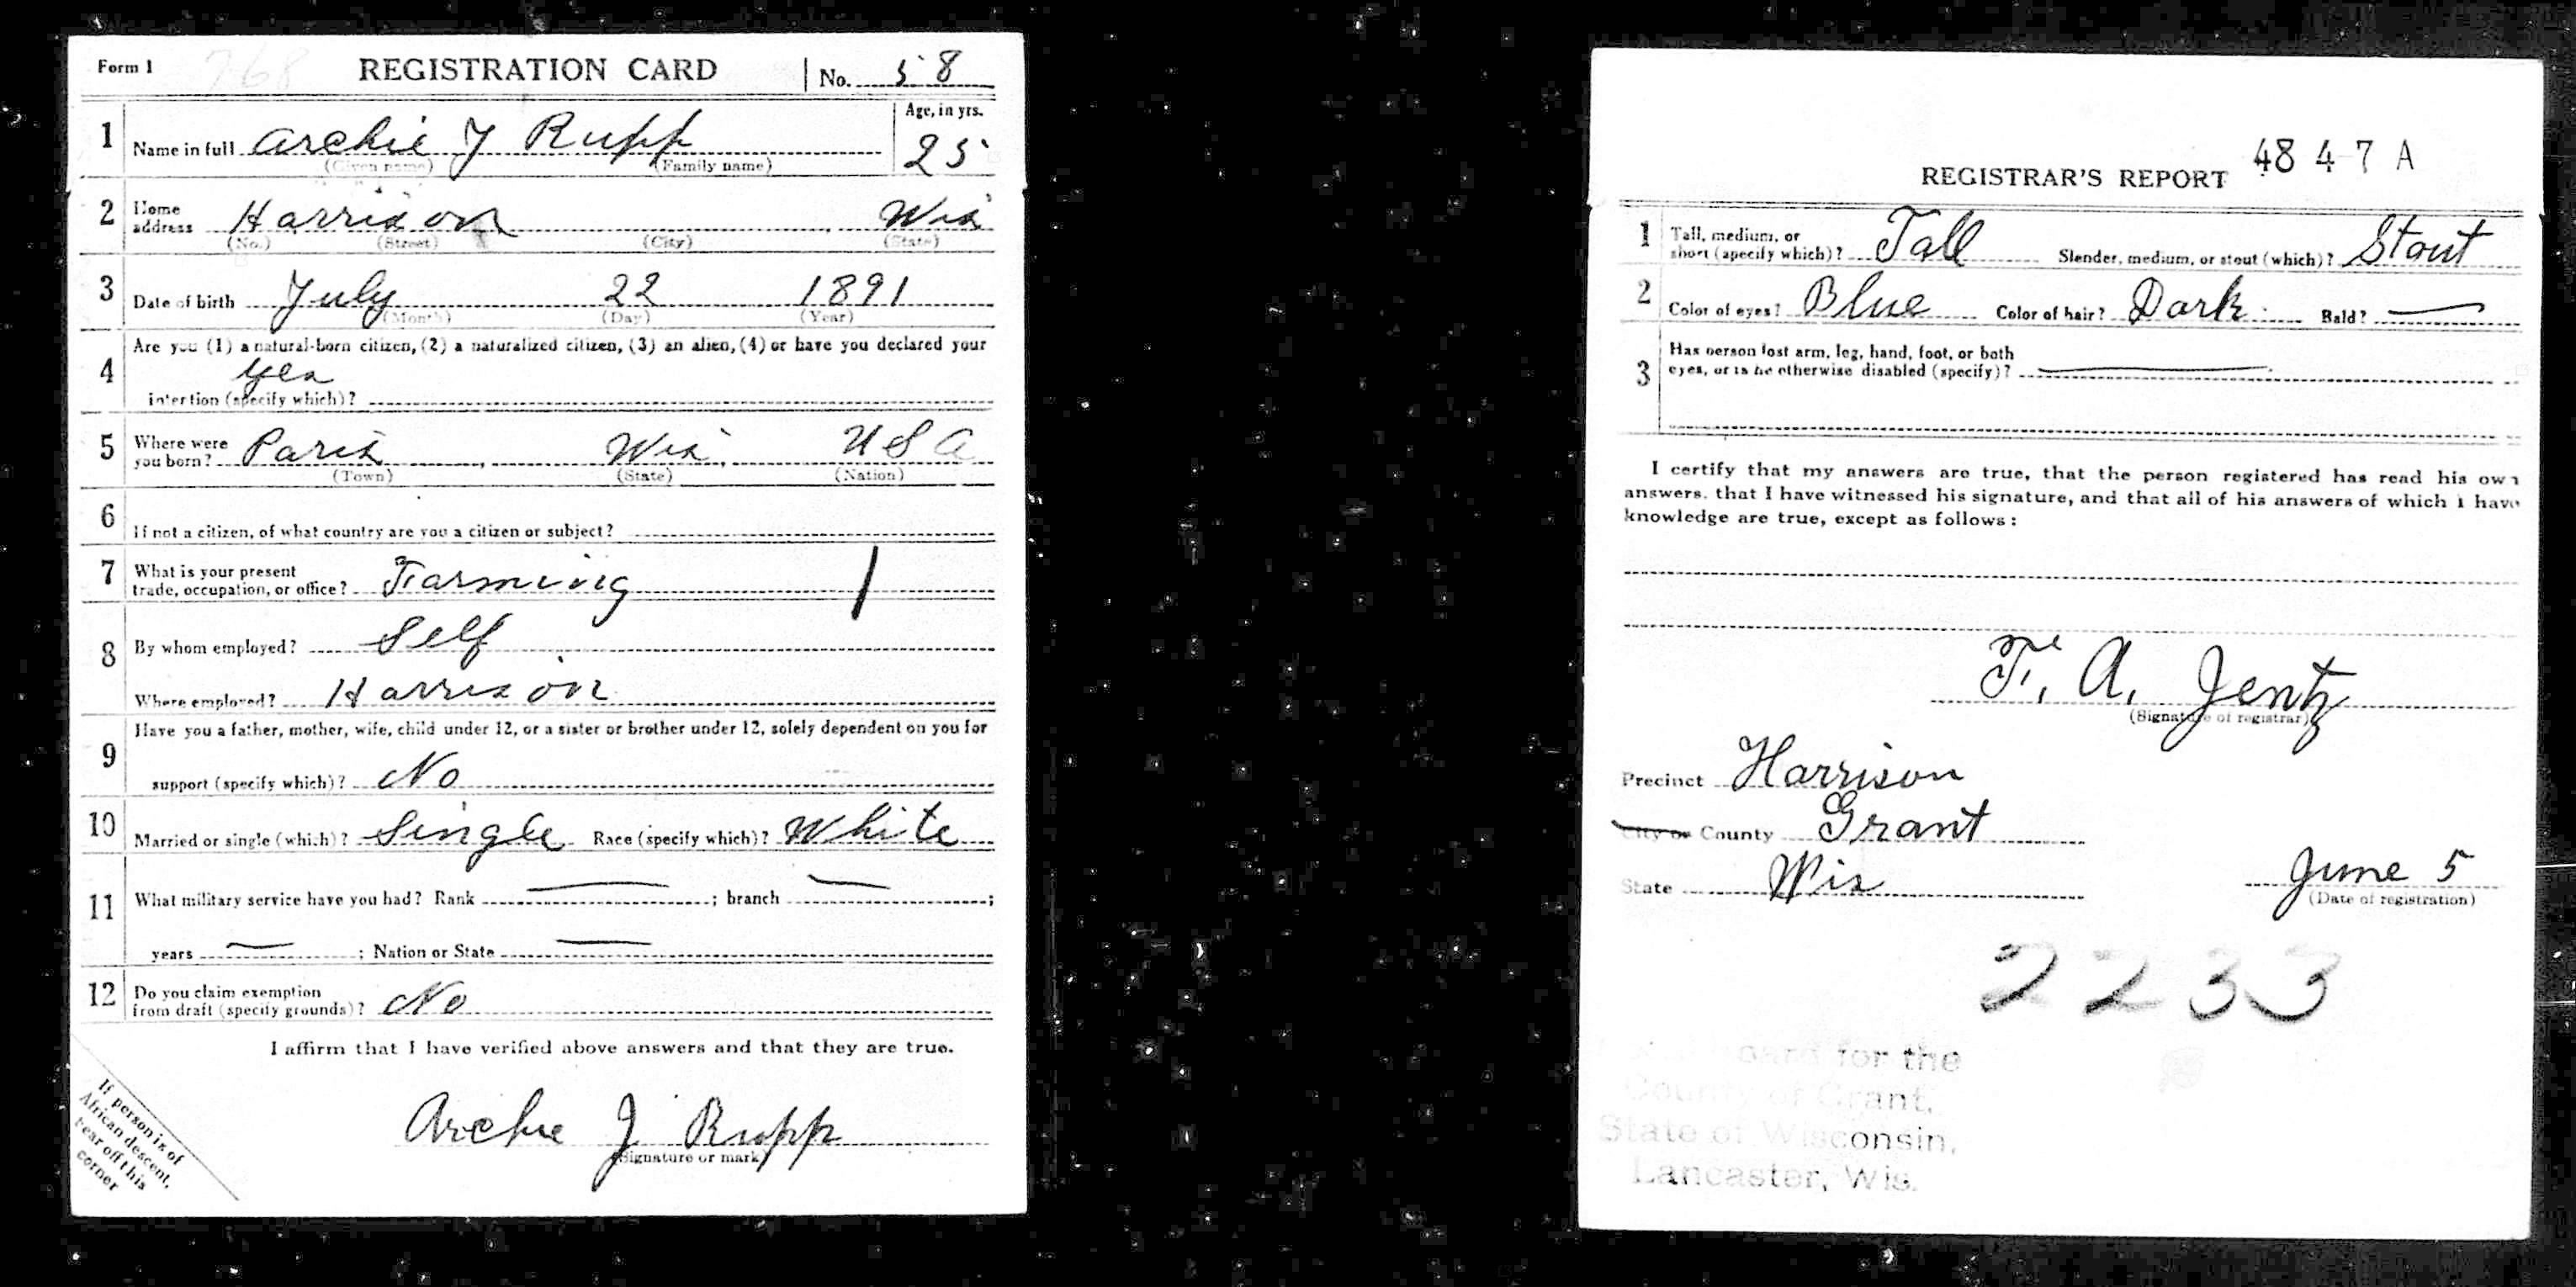 Form 1 768 REGISTRATION CARD No. 58
1 Name in full Archie J Rupp Age, in yrs. 25
(Given name) (Family name)
2 Home address Harrison Wis
(No.) (Street) (City) (State)
3 Date of birth July 22 1891
(Month) (Day) (Year)
4 Are you (1) a natural-born citizen, (2) a naturalized citizen, (3) an alien, (4) or have you declared your
Yes
intention (specify which)?
5 Where were you born? Paris Wis, U S A
(Town) (State) (Nation)
6 If not a citizen, of what country are you a citizen or subject?
7 What is your present
trade, occupation, or office? Farming
8 By whom employed? Self
Where employed? Harrison
9 Have you a father, mother, wife, child under 12, or a sister or brother under 12, solely dependent on you for
support (specify which)? No
10 Married or single (which)? Single Race (specify which)? White
11 What military service have you had? Rank — ; branch — ;
years — ; Nation or State —
12 Do you claim exemption
from draft (specify grounds)? No
I affirm that I have verified above answers and that they are true.
Archie J Rupp
(Signature or mark)
If person is of
African descent,
tear off this
corner
REGISTRAR'S REPORT 48 4 7 A
1 Tall, medium, or
short (specify which)? Tall Slender, medium, or stout (which)? Stout
2 Color of eyes? Blue Color of hair? Dark Bald? —
3 Has person lost arm, leg, hand, foot, or both
eyes, or is he otherwise disabled (specify)? —
I certify that my answers are true, that the person registered has read his own
answers, that I have witnessed his signature, and that all of his answers of which I have
knowledge are true, except as follows:
F. A. Jentz
(Signature of registrar)
Precinct Harrison
City or County Grant
State Wis June 5
(Date of registration)
2233
Board for the
County of Grant,
State of Wisconsin,
Lancaster, Wis.